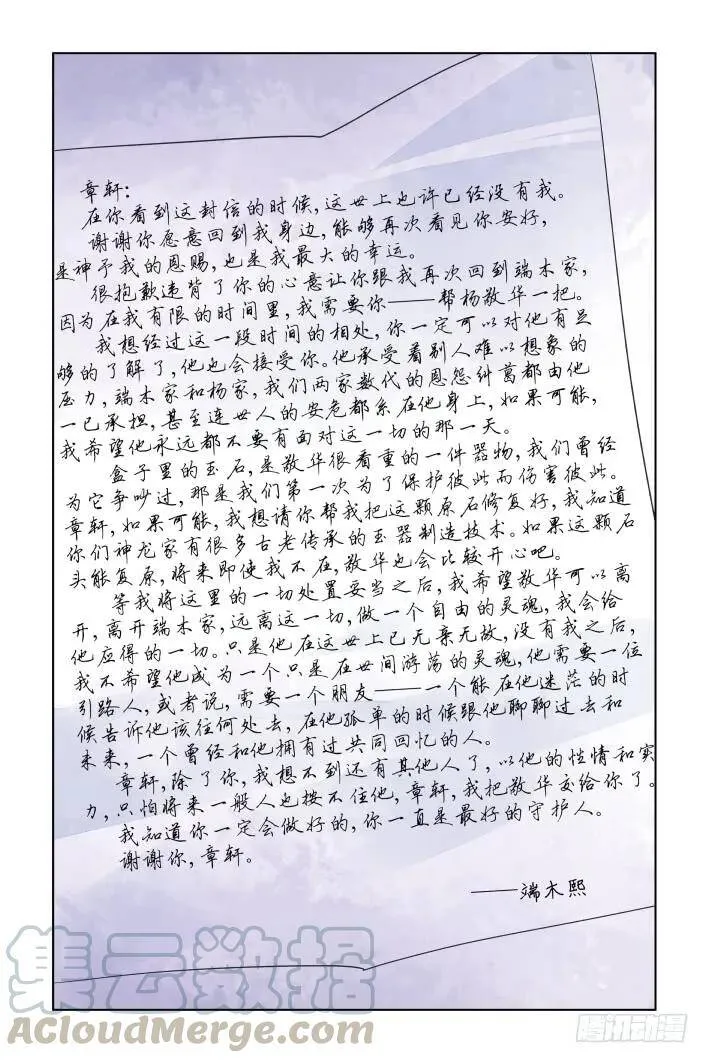 章轩：
在你看到这封信的时候，这世上也许已经没有我。
谢谢你愿意回到我身边，能够再次看见你安好，
是神予我的恩赐，也是我最大的幸运。
很抱歉违背了你的心意让你跟我再次回到端木家，
因为在我有限的时间里，我需要你——帮杨敬华一把。
我想经过这一段时间的相处，你一定可以对他有足
够的了解了，他也会接受你。他承受着别人难以想象的
压力，端木家和杨家，我们两家数代的恩怨纠葛都由他
一己承担，甚至连世人的安危都系在他身上，如果可能，
我希望他永远都不要有面对这一切的那一天。
盒子里的玉石，是敬华很看重的一件器物，我们曾经
为它争吵过，那是我们第一次为了保护彼此而伤害彼此。
章轩，如果可能，我想请你帮我把这颗原石修复好，我知道
你们神龙家有很多古老传承的玉器制造技术。如果这颗石
头能复原，将来即使我不在，敬华也会比较开心吧。
等我将这里的一切处置妥当之后，我希望敬华可以离
开，离开端木家，远离这一切，做一个自由的灵魂，我会给
他应得的一切。只是他在这世上已无亲无故，没有我之后，
我不希望他成为一个只是在世间游荡的灵魂，他需要一位
引路人，或者说，需要一个朋友——一个能在他迷茫的时
候告诉他该往何处去，在他孤单的时候跟他聊聊过去和
未来，一个曾经和他拥有过共同回忆的人。
章轩，除了你，我想不到还有其他人了，以他的性情和实
力，只怕将来一般人也按不住他，章轩，我把敬华交给你了。
我知道你一定会做好的，你一直是最好的守护人。
谢谢你，章轩。
——端木熙
集云数据
ACloudMerge.com
腾讯动漫